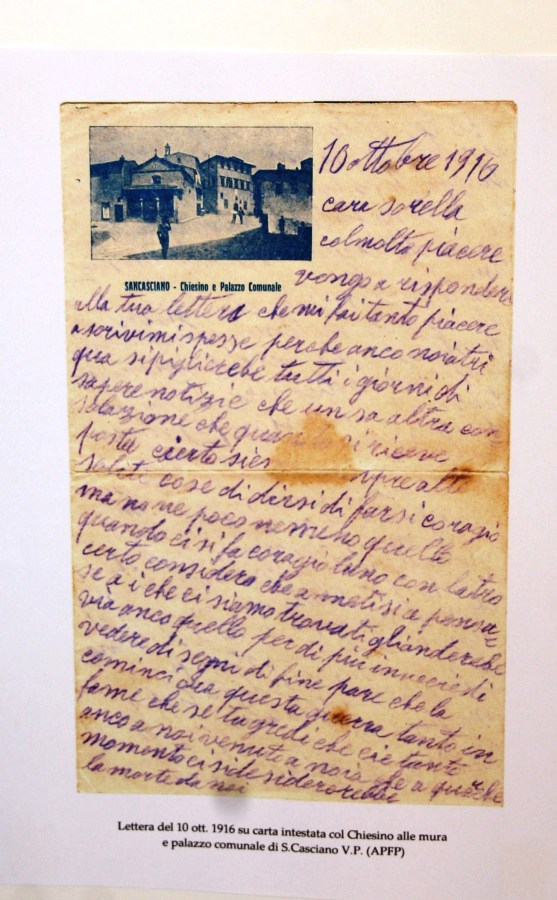 10 ottobre 1916
cara sorella
col molto piacere
vengo a rispondere
SANCASCIANO - Chiesino e Palazzo Comunale
alla tua lettera che mi fai tanto piacere
a scrivimi spesse perche anco noiatri
qua si piglierebe tutti i giorni di
sapere notizie che un sa altra con
solazione che quando si riceve
posta certo si
solite cose di dirsi di farsi coragio
ma no ne poco nemeno quello
quando ci si fa coragio luno con latro
certo considera che a notisi a pensa=
se a i che ci siamo trovati glianderebe
via anco quello per di più invece di
vedere di segni di fine pare che la
cominci qua questa guerra tanto in
fame che se tu credi che cie tanto
anco a noi venuto a noia che a quarche
momento ci si de siderorebbe
la morte da noi
Lettera del 10 ott. 1916 su carta intestata col Chiesino alle mura
e palazzo comunale di S.Casciano V.P. (APFP)